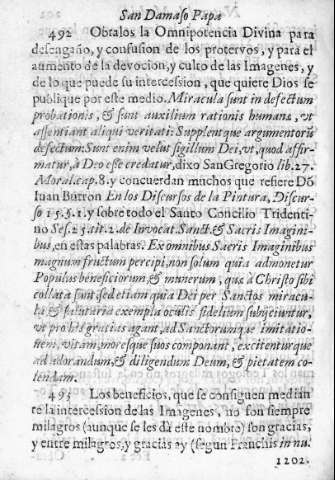 San Damaso Papa
492 Obralos la Omnipotencia Divina para
desengaño, y confusion de los protervos, y para el
aumento de la devocion, y culto de las Imagenes, y
de lo que puede su intercession, que quiere Dios se
publique por este medio. Miracula sunt in defectum
probationis, & sunt auxilium rationis humanæ, vt
assentiant aliqui veritati: Supplent que argumentorũ
defectum: Sunt enim velut sigillum Dei, vt, quod affir-
matur, à Deo esse credatur, dixo San Gregorio lib. 27.
Moral. cap. 8. y concuerdan muchos que refiere Dõ
Iuan Butron En los Discursos de la Pintura, Discur-
so 15. §. 1. y sobre todo el Santo Concilio Tridenti-
no Ses. 25. tit. 2. de Invocat. Sanct. & Sacris Imagini-
bus, en estas palabras: Ex omnibus Sacris Imaginibus
magnum fructum percipi, non solum quia admonetur
Populus beneficiorum, & munerum, quæ à Christo sibi
collata sunt, sed etiam quia Dei per Sanctos miracu-
la & salutaria exempla oculis fidelium subjciuntur,
vt pro his gracias agant, ad Sanctorumque imitatio-
nem, vitam, moresque suos componant, excitenturque
ad adorandum, & diligendum Deum, & pietatem co-
lendam.
493 Los beneficios, que se consiguen median
te la intercession de las Imagenes, no son siempre
milagros (aunque se les dà este nombre) son gracias,
y entre milagros, y gracias ay (segun Franchis in nu.
1202.